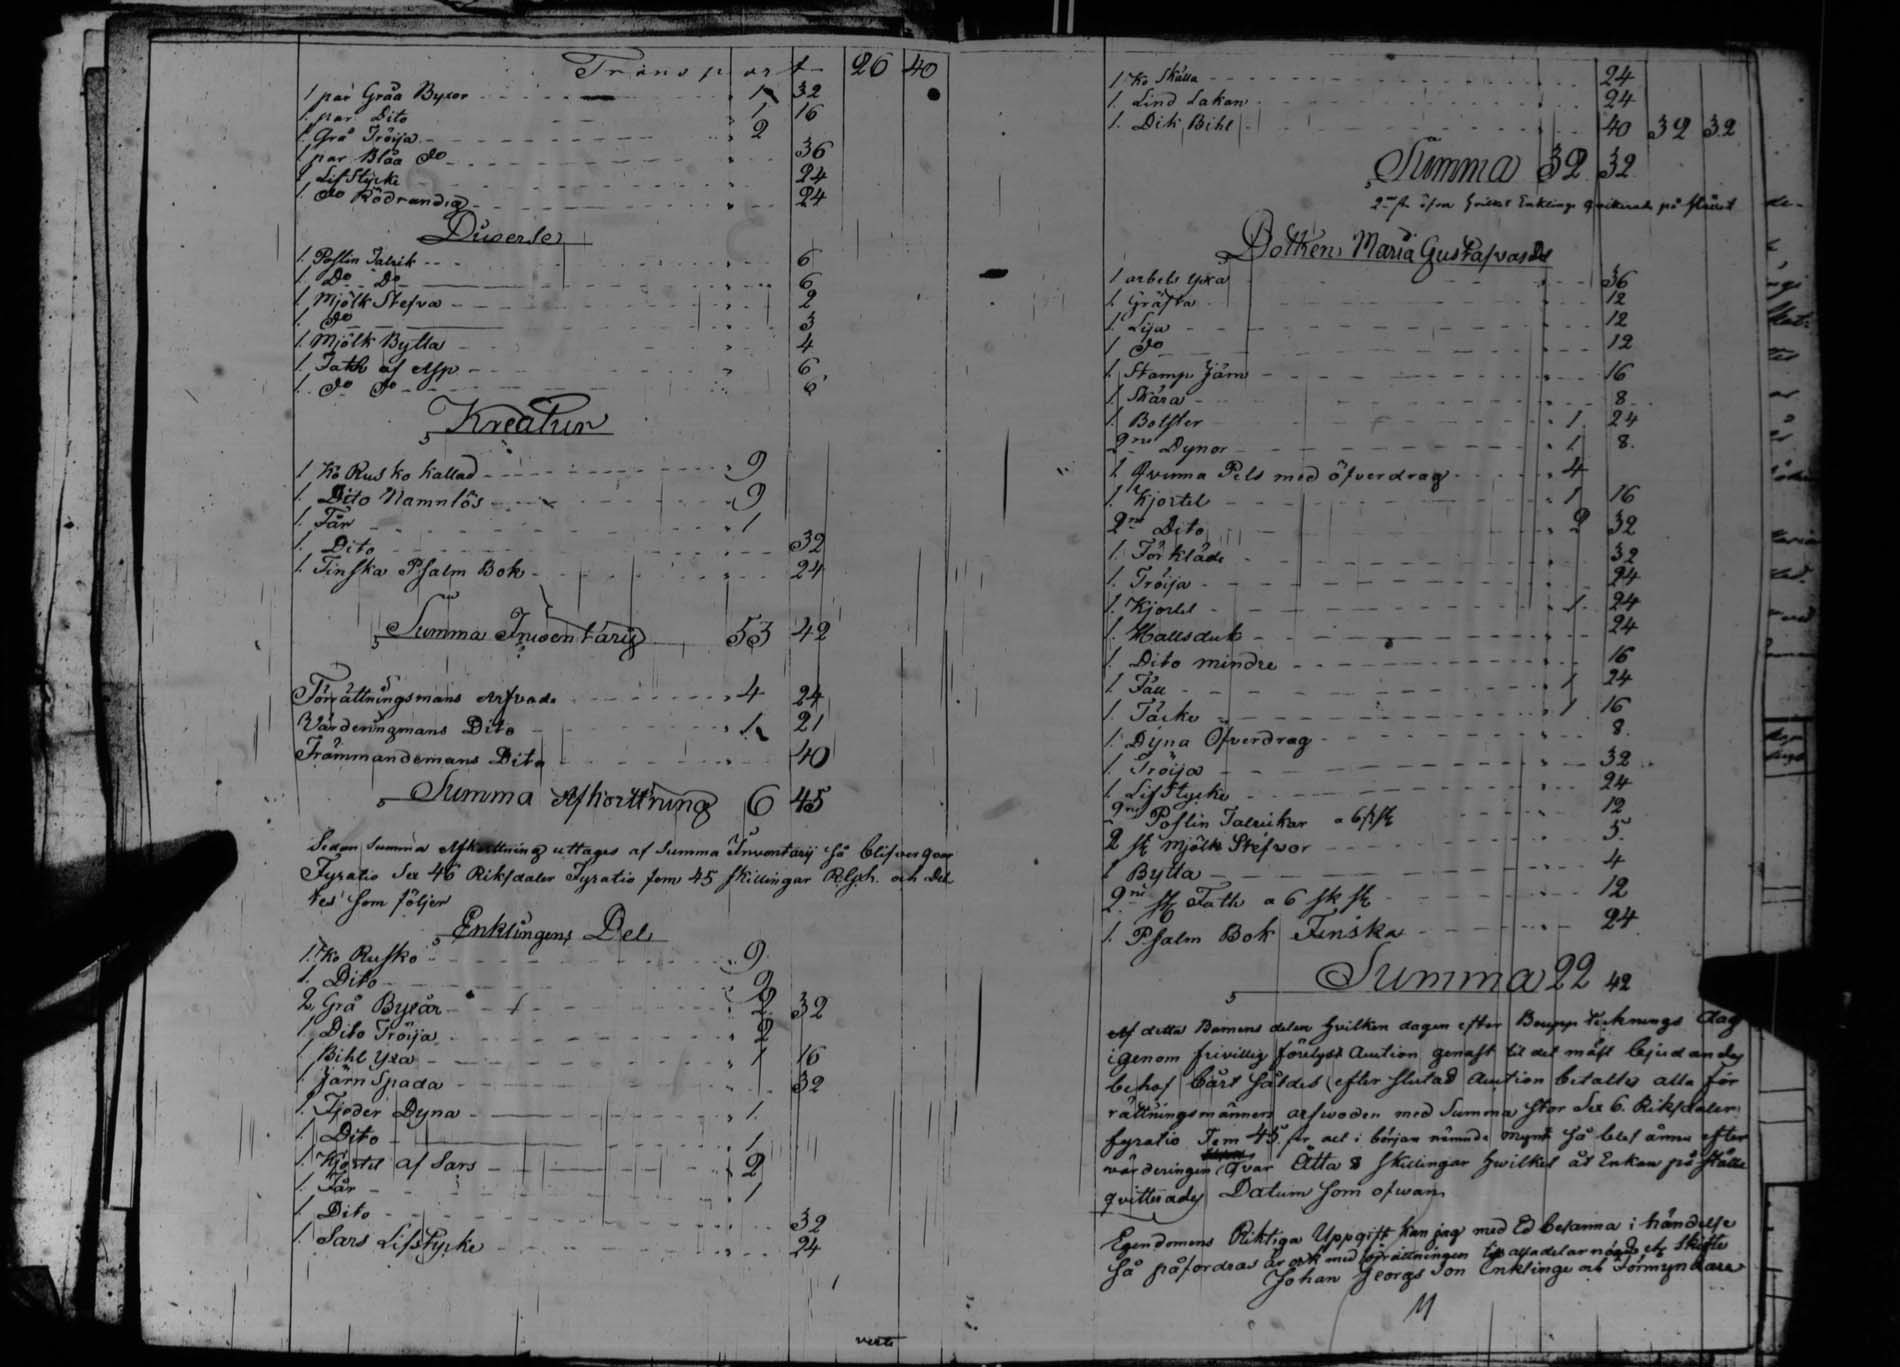 Transport 26 40
1 par Gråa Byxor 1 32
1. par Dito 1 16
1. Grå Tröija 2
1 par Blåa do 36
1 Lifstycke 24
1. do Rödrandig 24
Diverse
1. Poslin Talrik 6
1. Do Do 6
1. Mjölk Stefva 2
1. do 3
1. Mjölk Bytta 4
1. Fath af Asp 6
1. do do 6
Kreatur
1 Ko Rusko kallad 9
1. Dito Namnlös 9
1. Får 1
1. Dito 32
1. Finska Psalm Bok 24
Summa Inventarij 53 42
Förrättningsmans Arfvode 4 24
Värderingmans Dito 1 21
Främmandemans Dito 40
Summa Afkorttning 6 45
Sedan Summa Afkorttning uttages af Summa Inventarij så blifver qvar
Fyratio Sex 46 Riksdaler Fyratio fem 45 skillingar Rgsh. och Del
tes som följer
Enklingens Del
1. Ko Rusko 9
1. Dito 9
2. Grå Byxor 2 32
1 Dito Tröija 2
1 Bihl Yxa 1 16
1. Järn Spada 32
1. Fjeder Dyna 1
1. Dito 1
1. Kjortel af Sars 2
1. Får 1
1. Dito 32
1. Sars Lifstycke 24
verte
1 Ko Skälla 24
1. Lind Lakan 24
1. Dik Bihl 40 32 32
Summa 32 32
Enklinge qvitterade på stället
Dotken Maria Gustafvas Del
1 arbets yxa 36
1. Gräfta 12
1. Lija 12
1 do 12
1. Stamp Järn 16
1. Skära 8
1. Bolster 1 24
2ne Dynor 1 8
1 Qvinna Pels med öfverdrag 4
1. Kjortel 1 16
2ne Dito 2 32
1. Förkläde 32
1. Tröija 24
1. Kjortel 1 24
1. Hallsduk 24
1. Dito mindre 16
1. Fäll 1 24
1. Täcke 1 16
1. Dyna Öfverdrag 8
1. Tröija 32
1. Lifstycke 24
2ne Poslin Talrickar a 6 sk 12
2 st Mjölk Stefvor 5
1 Bytta 4
2ne st Fath a 6 sk st 12
1. Psalm Bok Finska 24
Summa 22 42
Af detta Barnens delen hvilken dagen efter Boupp tecknings dag
igenom frivillig förelyst Auction genast til det mäst bjudandes
behof bårt såldes efter slutad Auction betaltes alla för
rättningsmännen arfwoden med Summa stor Sex 6. Riksdaler
fyratio Fem 45. för det i början nämnde mynt så blef ännu efter
värderingen qvar Åtta 8 skillingar hwilket åt Enkan på ställe
qvitterades Datum som ofwan
Egendomens Riktiga Uppgift kan jag med Ed besanna i händelse
så påfordras är ock med förrättningen till alla delar nögd och Skifte
Johan Georgs Son Enklinge och Förmyndare